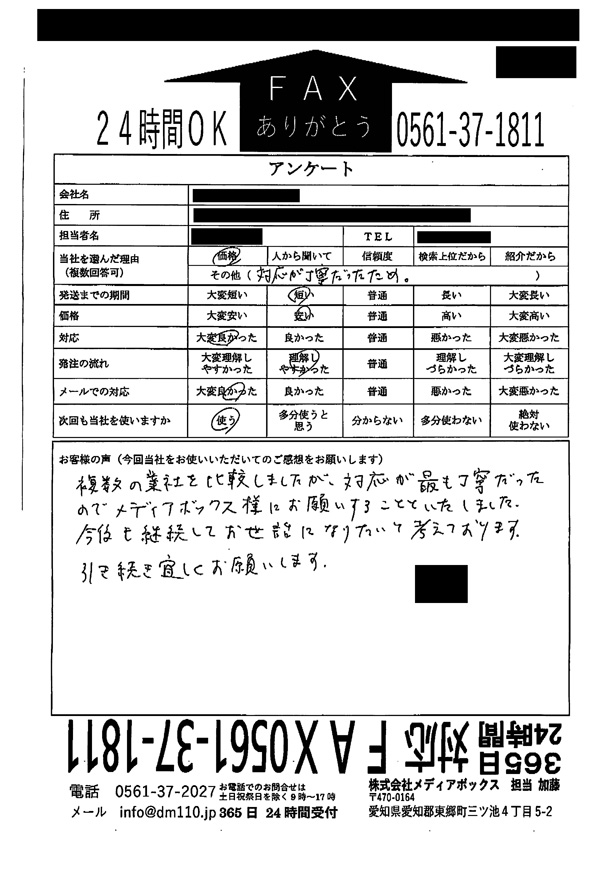 FAX
ありがとう
24時間OK 0561-37-1811
アンケート
会社名
住 所
担当者名 TEL
当社を選んだ理由(複数回答可) 価格 人から聞いて 信頼度 検索上位だから 紹介だから
その他(対応が丁寧だったため。)
発送までの期間 大変短い 短い 普通 長い 大変長い
価格 大変安い 安い 普通 高い 大変高い
対応 大変良かった 良かった 普通 悪かった 大変悪かった
発注の流れ 大変理解しやすかった 理解しやすかった 普通 理解しづらかった 大変理解しづらかった
メールでの対応 大変良かった 良かった 普通 悪かった 大変悪かった
次回も当社を使いますか 使う 多分使うと思う 分からない 多分使わない 絶対使わない
お客様の声(今回当社をお使いいただいてのご感想をお願いします)
複数の業社を比較しましたが、対応が最も丁寧だった
のでメディアボックス様にお願いすることといたしました。
今後も継続してお世話になりたいと考えております。
引き続き宜しくお願いします。
365日24時間対応 FAX0561-37-1811
電話 0561-37-2027 お電話でのお問合せは土日祝祭日を除く9時〜17時
メール info@dm110.jp 365日 24時間受付
株式会社メディアボックス 担当 加藤
〒470-0164
愛知県愛知郡東郷町三ツ池4丁目5-2